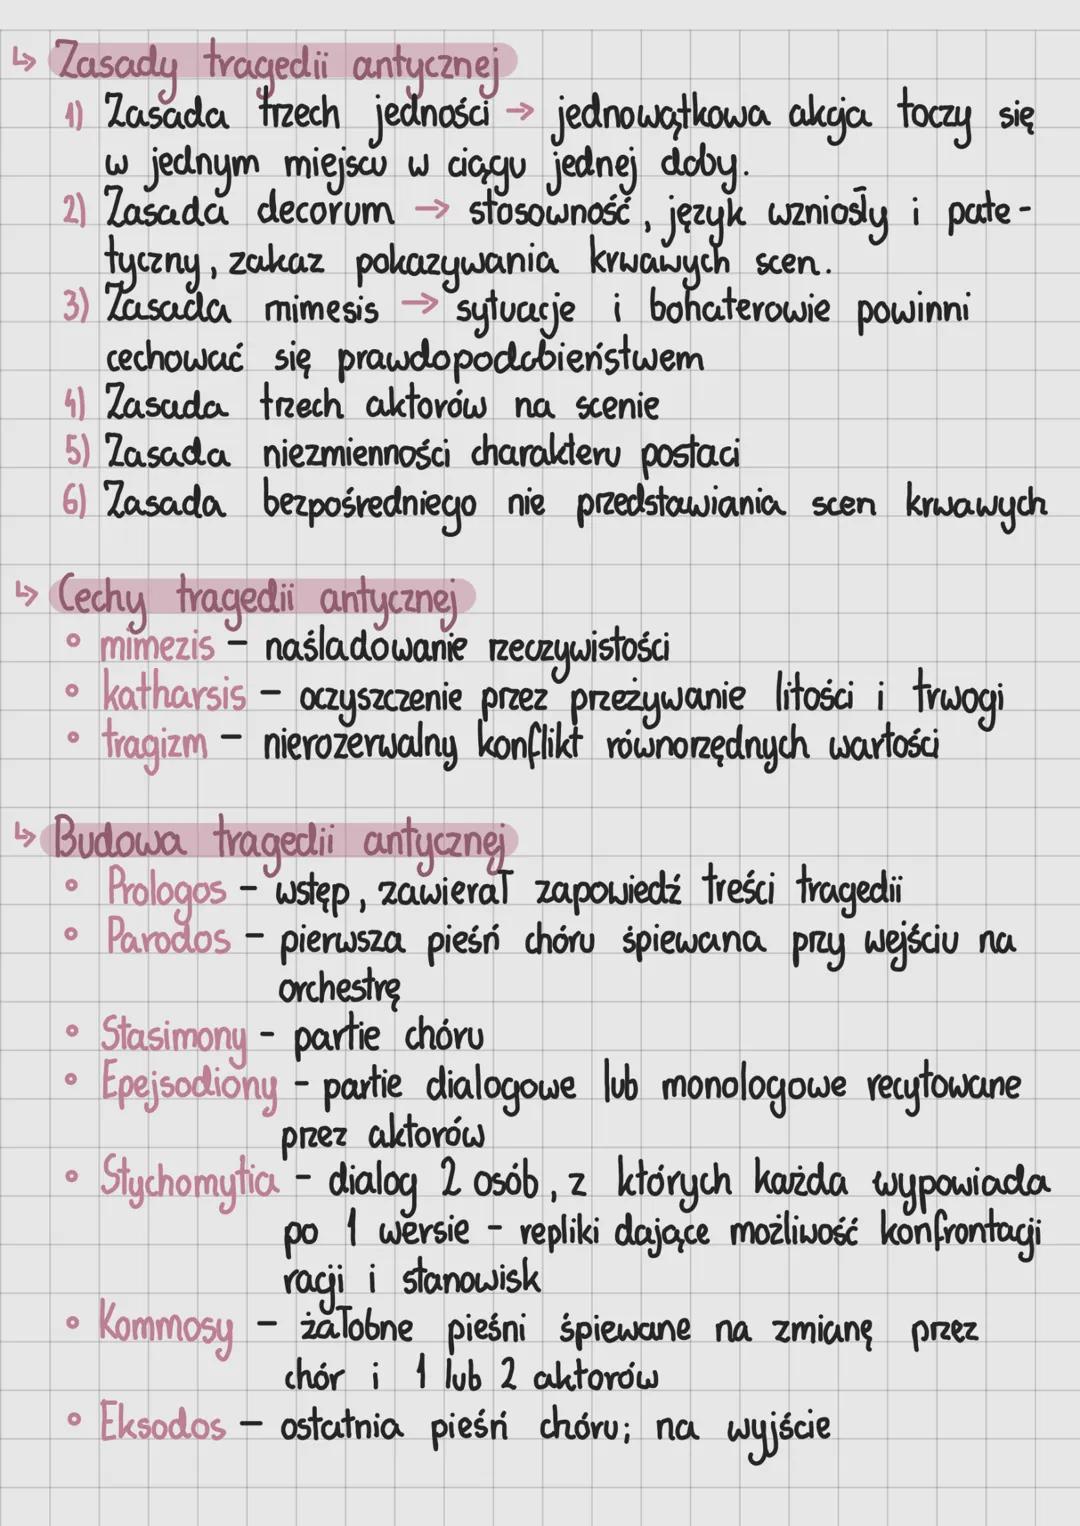 ↳ Zasady tragedii antycznej
1) Zasada trzech jedności → jednowątkowa akcja toczy się
w jednym miejscu w ciągu jednej doby.
2) Zasada decorum → stosowność, język wzniosły i pate-
tyczny, zakaz pokazywania krwawych scen.
3) Zasada mimesis → sytuacje i bohaterowie powinni
cechować się prawdopodobieństwem
4) Zasada trzech aktorów na scenie
5) Zasada niezmienności charakteru postaci
6) Zasada bezpośredniego nie przedstawiania scen krwawych
↳ Cechy tragedii antycznej
• mimezis – naśladowanie rzeczywistości
• katharsis – oczyszczenie przez przeżywanie litości i trwogi
• tragizm – nierozerwalny konflikt równorzędnych wartości
↳ Budowa tragedii antycznej
• Prologos – wstęp, zawierał zapowiedź treści tragedii
• Parodos – pierwsza pieśń chóru śpiewana przy wejściu na
orchestrę
• Stasimony – partie chóru
• Epejsodiony – partie dialogowe lub monologowe recytowane
przez aktorów
• Stychomytia – dialog 2 osób, z których każda wypowiada
po 1 wersie – repliki dające możliwość konfrontacji
racji i stanowisk
• Kommosy – żałobne pieśni śpiewane na zmianę przez
chór i 1 lub 2 aktorów
• Eksodos – ostatnia pieśń chóru; na wyjście